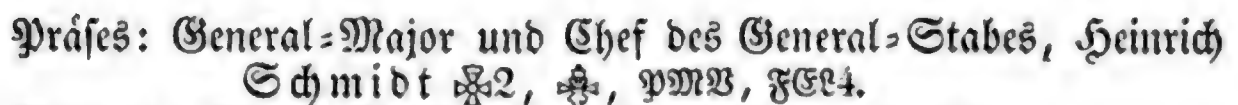 Präses: General-Major und Chef des General-Stabes, Heinrich
Schmidt ✠2, ✠, PMV, FEL4.